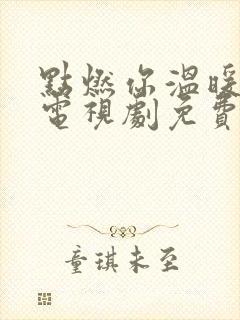 點燃你溫暖
電視劇免費
童琪未至